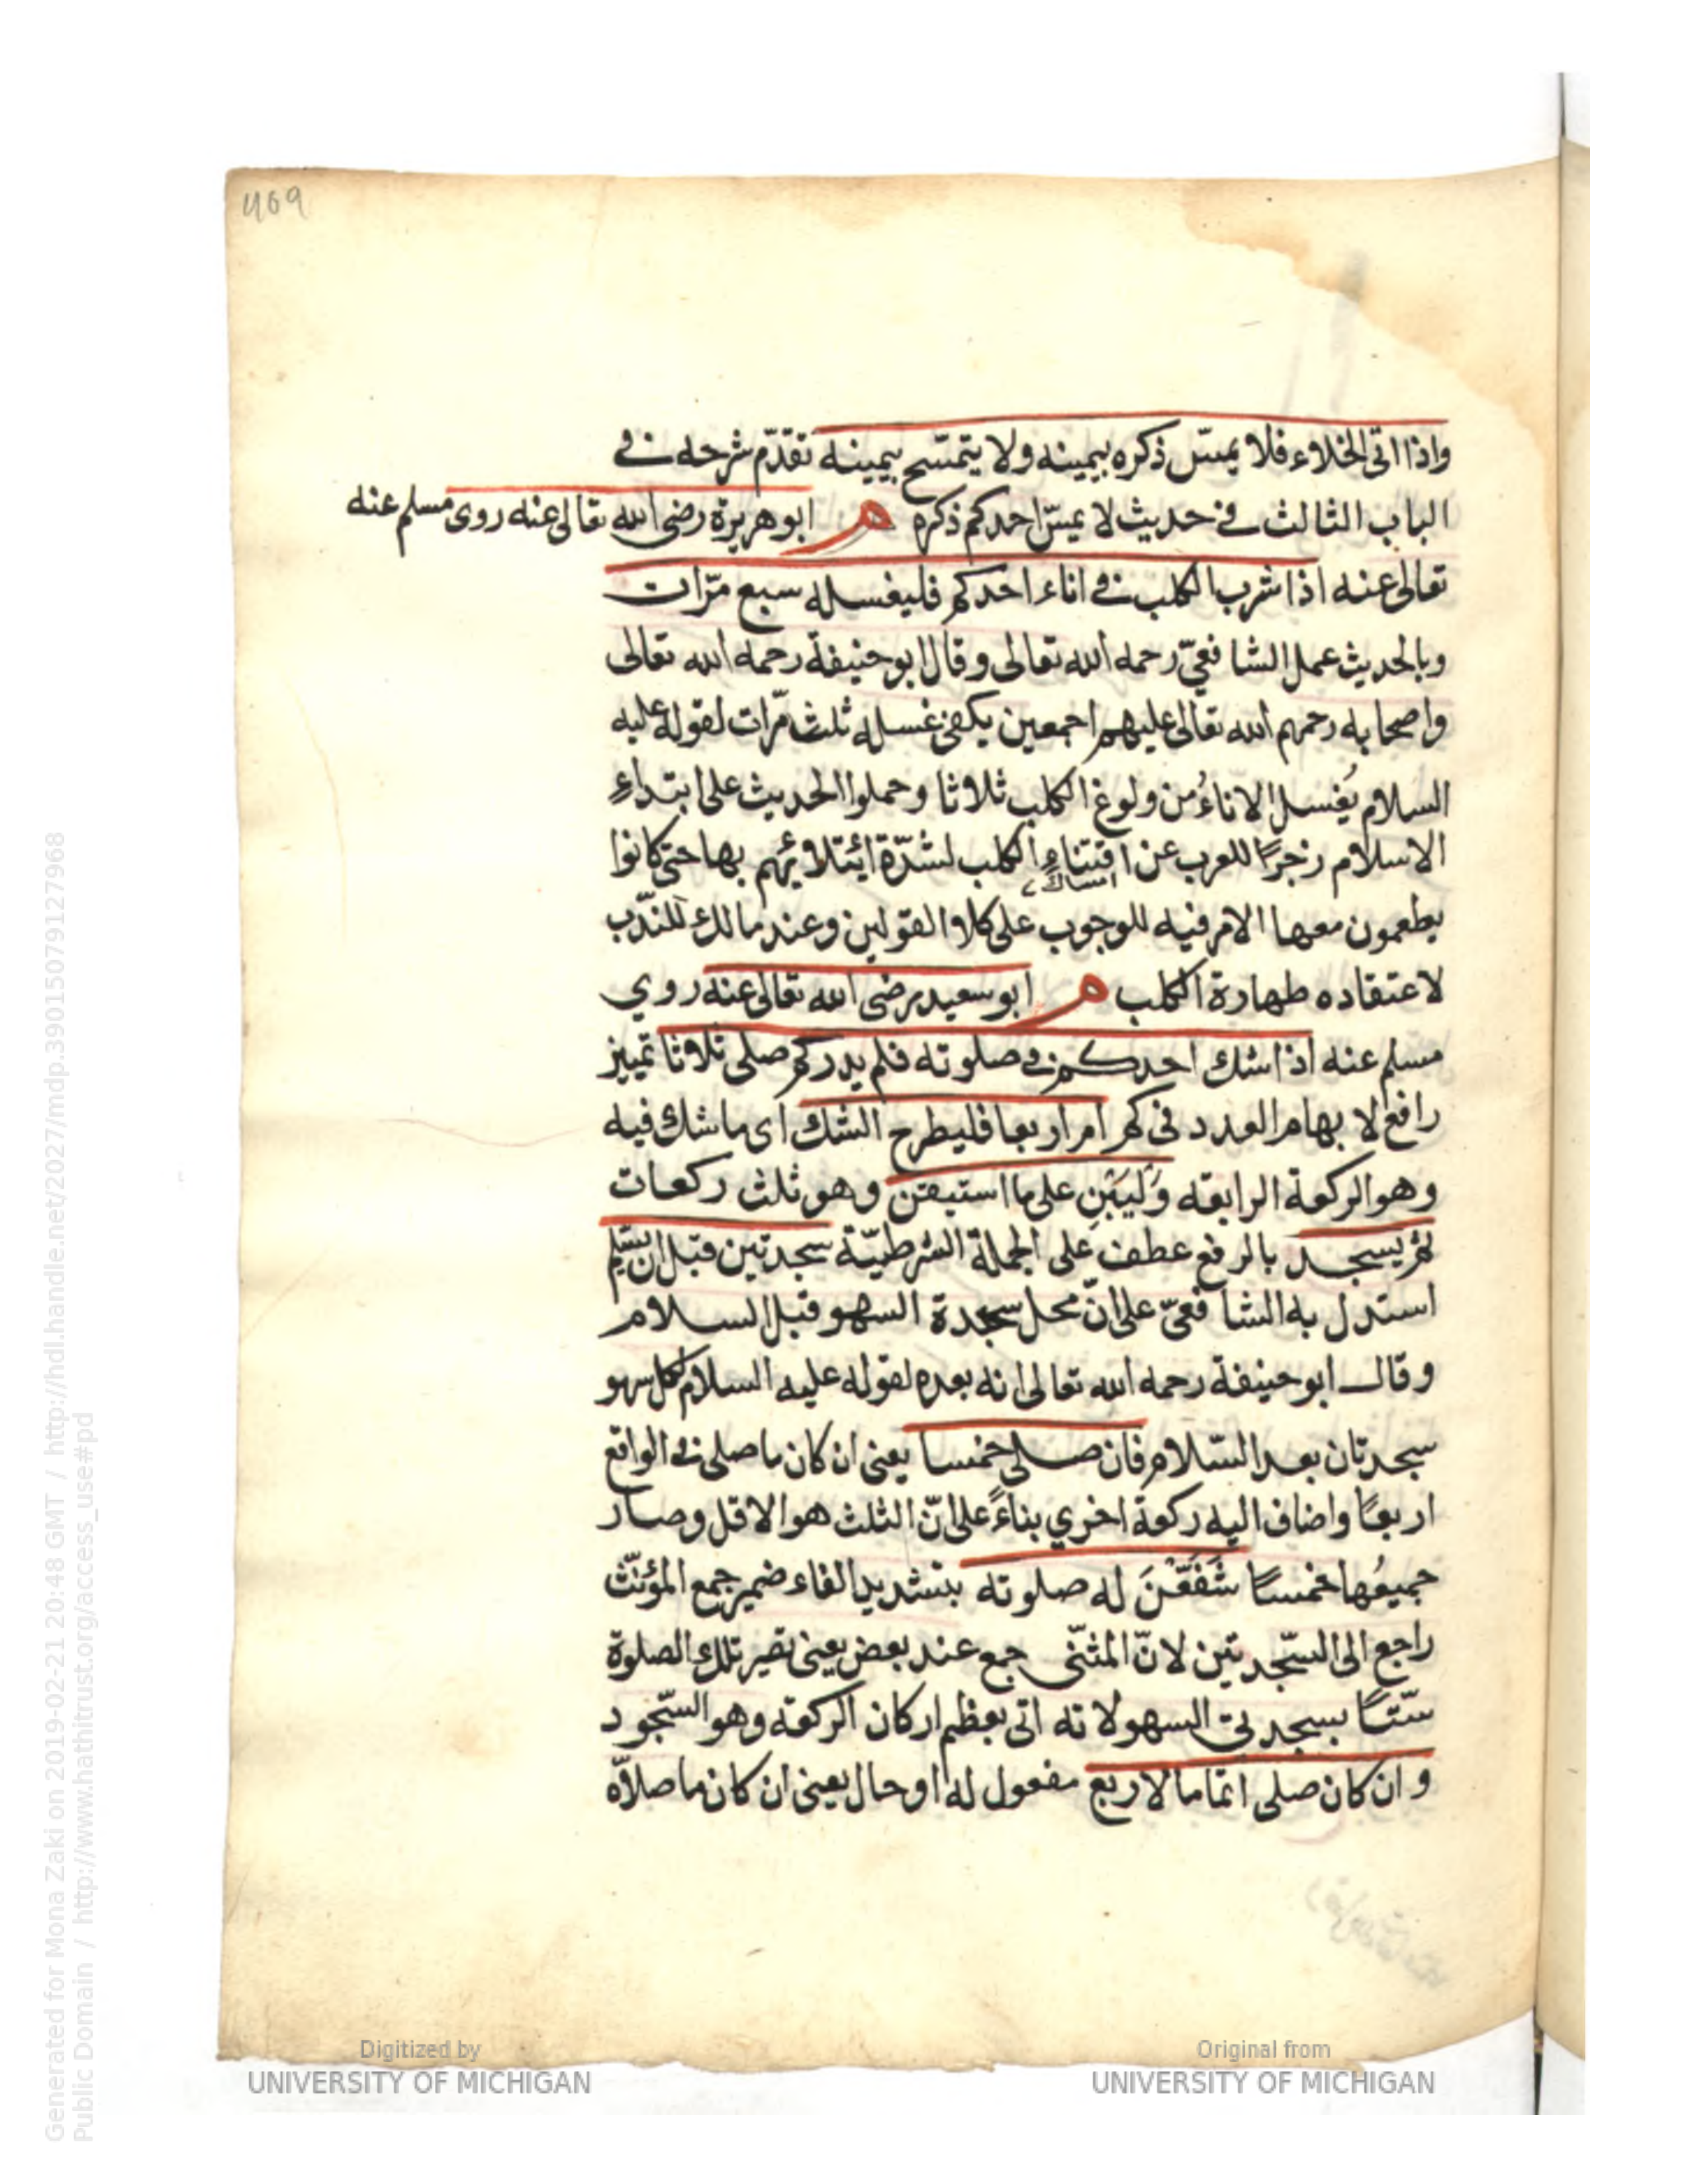 469
واذا اتى الخلاء فلا يمسّ ذكره بيمينه ولا يتمسّح بيمينه تقدّم شرحه في
الباب الثالث في حديث لا يمسّ احدكم ذكره م ابو هريرة رضى الله تعالى عنه روى مسلم عنه
تعالى عنه اذا شرب الكلب في اناء احدكم فليغسله سبع مرّات
وبالحديث عمل الشافعيّ رحمه الله تعالى وقال ابو حنيفة رحمه الله تعالى
واصحابه رحمهم الله تعالى عليهم اجمعين يكفى غسله ثلث مرّات لقوله عليه
السلام يُغسل الاناءُ من ولوغ الكلب ثلاثا وحملوا الحديث على ابتداءِ
الاسلام زجرًا للعرب عن اقتناءِ الكلب لشدّة ائتلائهم بها حتى كانوا
امساك
يطعمون معها الامر فيه للوجوب على كلا القولين وعند مالك للندب
لاعتقاده طهارة الكلب م ابو سعيد رضى الله تعالى عنه روي
مسلم عنه اذا شك احدكم في صلوته فلم يدر كم صلى ثلاثا تمييز
رافع لابهام العدد في كم ام اربعا فليطرح الشك اى ما شك فيه
وهو الركعة الرابعة وَليَبْنِ على ما استيقن وهو ثلث ركعات
ثم يسجد بالرفع عطف على الجملة الشرطيّة سجدتين قبل ان يسلّم
استدل به الشافعيّ على انّ محل سجدة السهو قبل السلام
وقال ابو حنيفة رحمه الله تعالى انه بعده لقوله عليه السلام لكل سهو
سجدتان بعد السّلام فان صلى خمسا يعنى ان كان ما صلى فى الواقع
اربعًا واضاف اليه ركعة اخري بناءً على انّ الثلث هو الاقل وصار
جميعُها خمسًا شَفَّعْنَ له صلوته بتشديد الفاء ضمير جمع المؤنّث
راجع الى السّجدتين لانّ المثنّى جمع عند بعض يعنى تصير تلك الصلوة
ستّتًا بسجدتى السهو لانه اتى بعظم اركان الركعة وهو السّجود
وان كان صلى اتماما لاربع مفعول له او حال يعنى ان كان ما صلاّه
Digitized by
UNIVERSITY OF MICHIGAN
Original from
UNIVERSITY OF MICHIGAN
Generated for Mona Zaki on 2019-02-21 20:48 GMT / http://hdl.handle.net/2027/mdp.39015079127968
Public Domain / http://www.hathitrust.org/access_use#pd